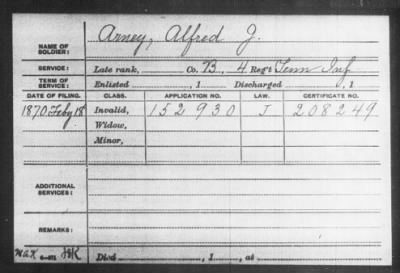 NAME OF SOLDIER: Arney, Alfred J.
SERVICE: Late rank, Co. B, 4 Reg't Tenn Inf
TERM OF SERVICE: Enlisted , 1 Discharged , 1
DATE OF FILING. CLASS. APPLICATION NO. LAW. CERTIFICATE NO.
1870 Feby 18 Invalid, 152930 J 208249
Widow,
Minor,
ADDITIONAL SERVICES:
REMARKS:
Died , 1 , at